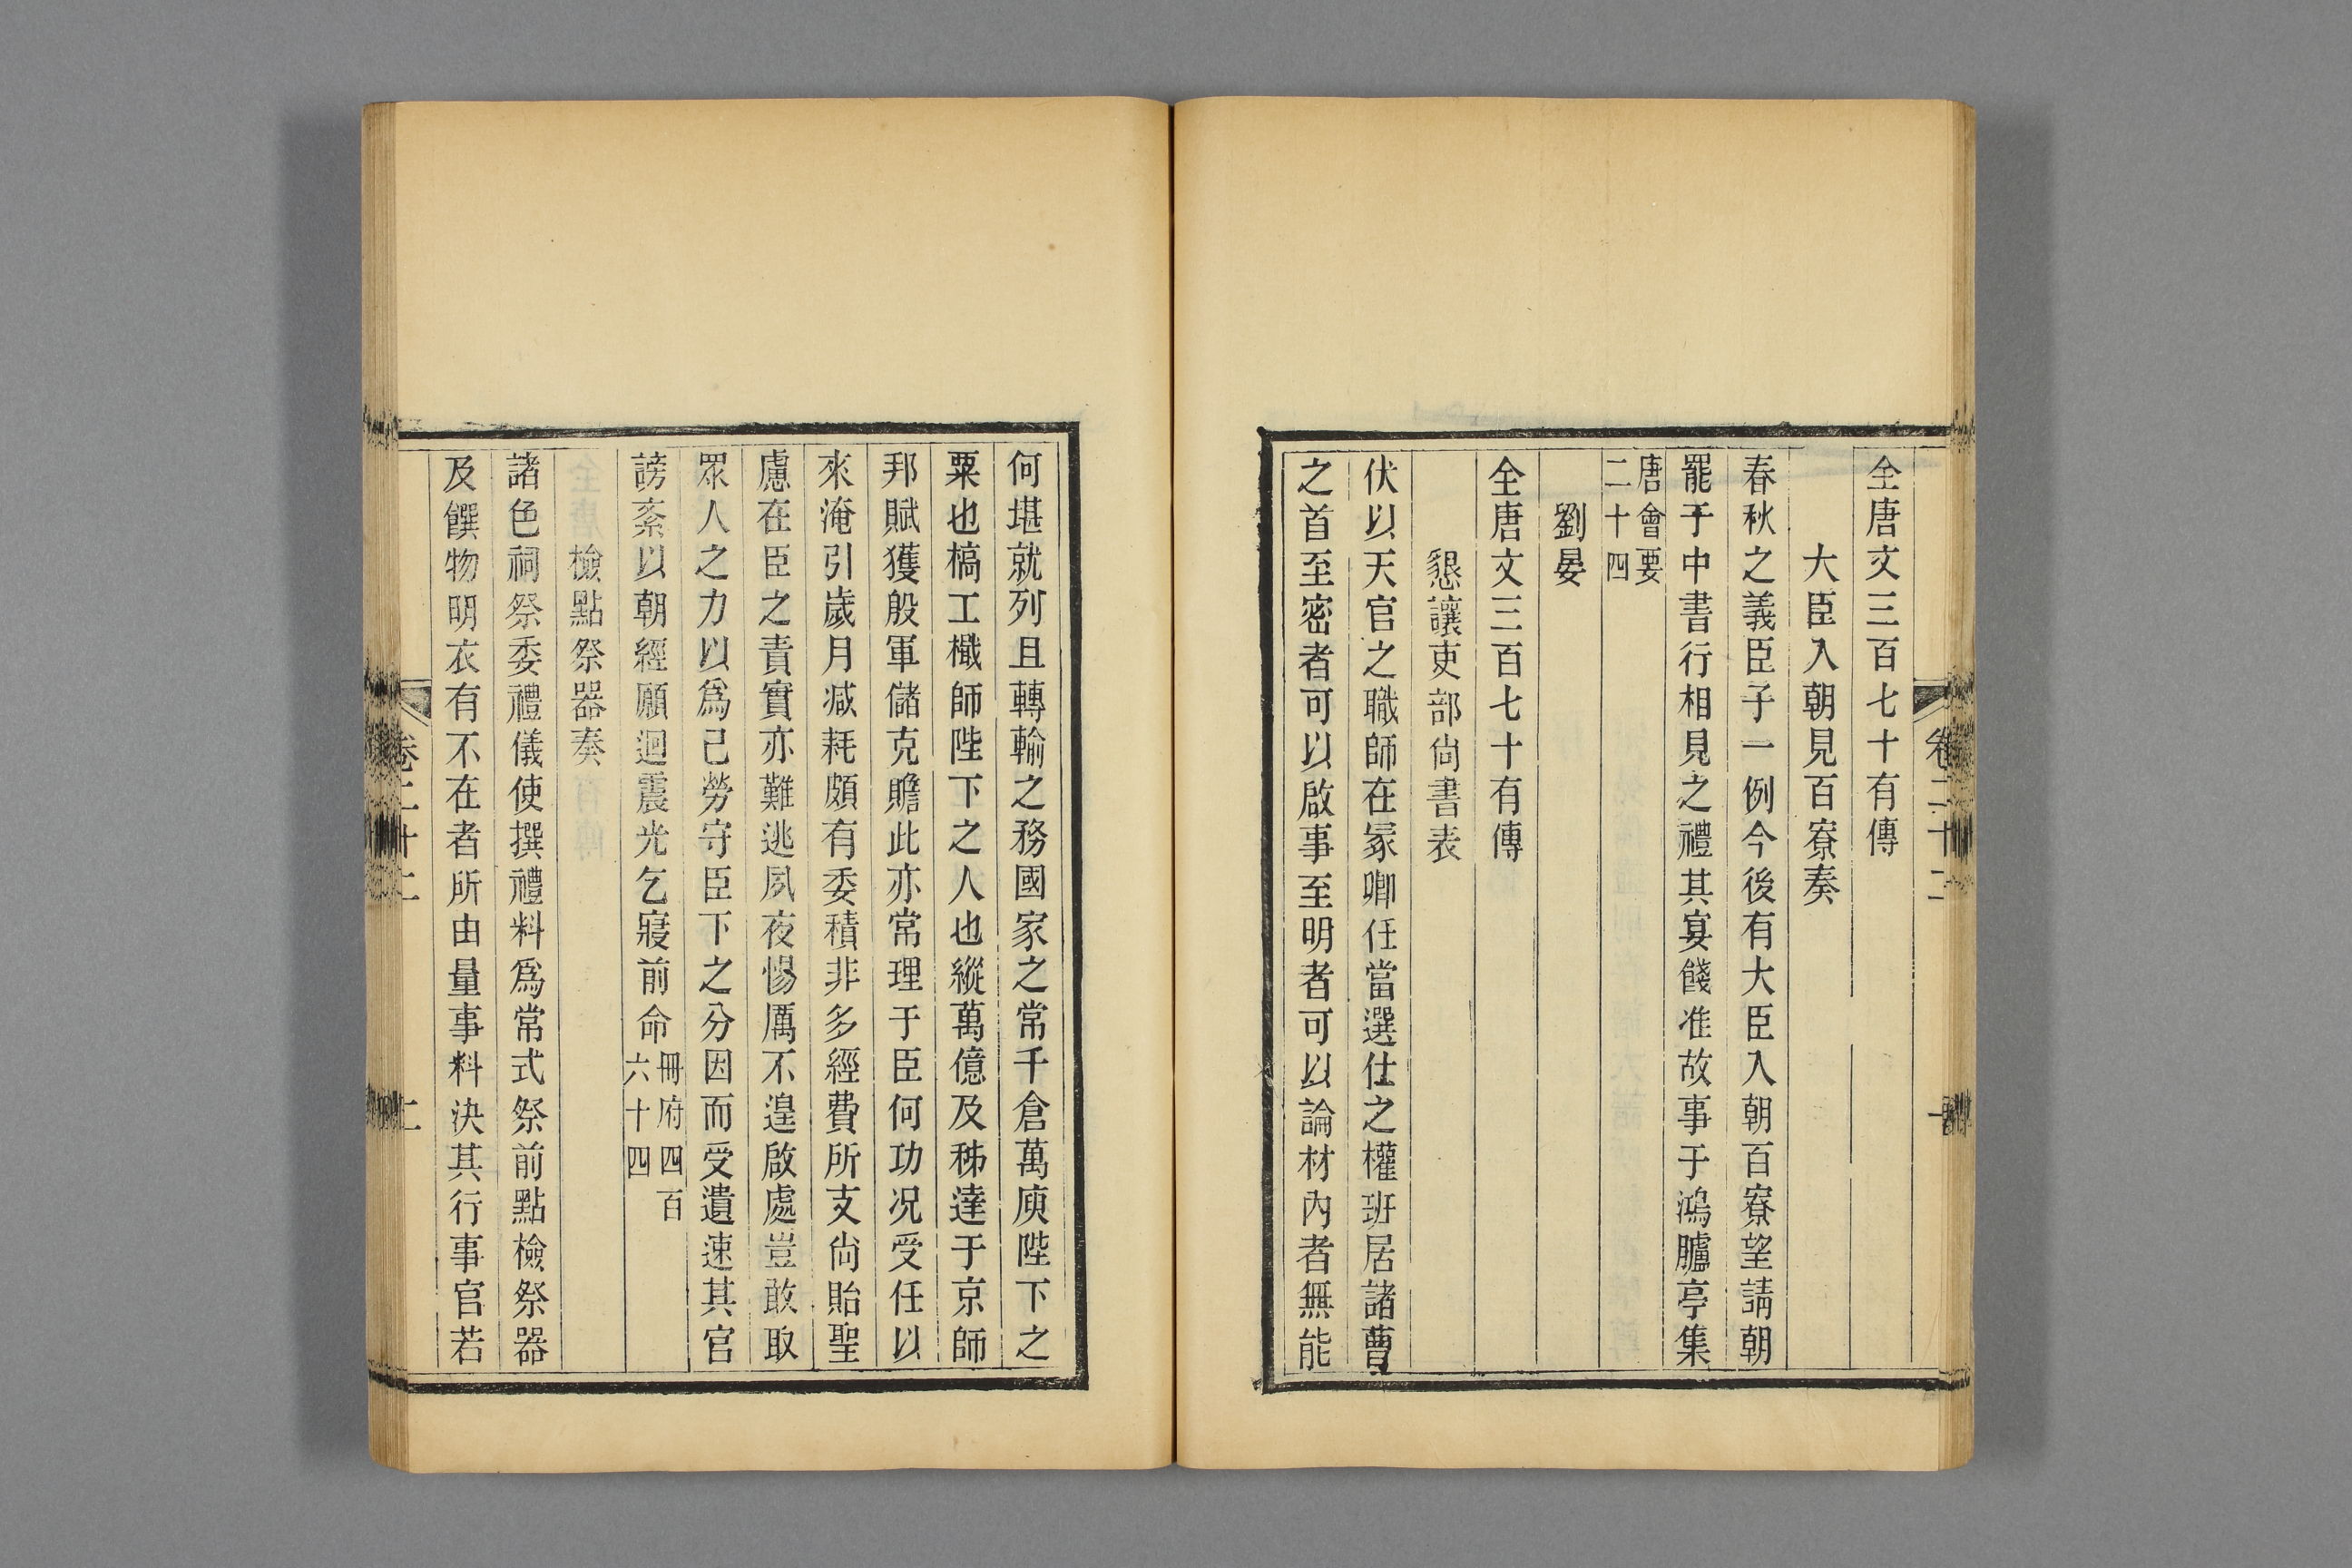 全唐文三百七十有傳
大臣入朝見百寮奏
春秋之義臣子一例今後有大臣入朝百寮望請朝
罷于中書行相見之禮其宴餞准故事于鴻臚亭集
唐會要
二十四
劉晏
全唐文三百七十有傳
懇讓吏部尙書表
伏以天官之職師在冢卿任當選仕之權班居諸曹
之首至密者可以啟事至明者可以論材內者無能
何堪就列且轉輸之務國家之常千倉萬庾陛下之
粟也槁工檝師陛下之人也縱萬億及秭達于京師
邦賦獲殷軍儲克贍此亦常理于臣何功况受任以
來淹引歲月減耗頗有委積非多經費所支尙貽聖
慮在臣之責實亦難逃夙夜惕厲不遑啟處豈敢取
眾人之力以爲己勞守臣下之分因而受遺速其官
謗紊以朝經願迴震光乞寢前命
冊府四百
六十四
檢點祭器奏
諸色祠祭委禮儀使撰禮料爲常式祭前點檢祭器
及饌物明衣有不在者所由量事料決其行事官若
卷二十二